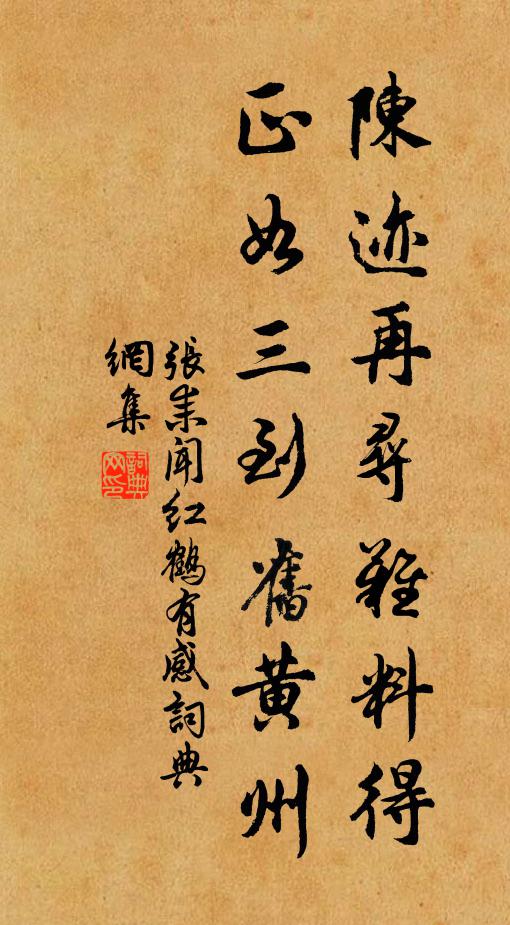 陳迹再尋難料得
正如三到舊黄州
張耒聞紅鶴有感詞典
網集
詞典
網印